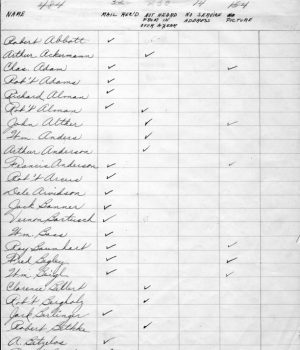 484 52 59 14 164
NAME MAIL REC'D NOT HEARD FROM IN OVER A YEAR NO SERVICE ADDRESS NO PICTURE
Robert Abbott
Arthur Ackermann
Chas. Adam
Rob't Adams
Richard Alman
Rob't Alman
John Alther
Wm. Anders
Arthur Anderson
Francis Anderson
Rob't Arcus
Dale Arvidson
Jack Banner
Vernon Bartusch
Wm. Bass
Ray Baunhart
Fred Begley
Wm. Beigl
Clarence
Rob't Bergholz
Jack Berlinger
Robert Bethke
A. Bitzelos